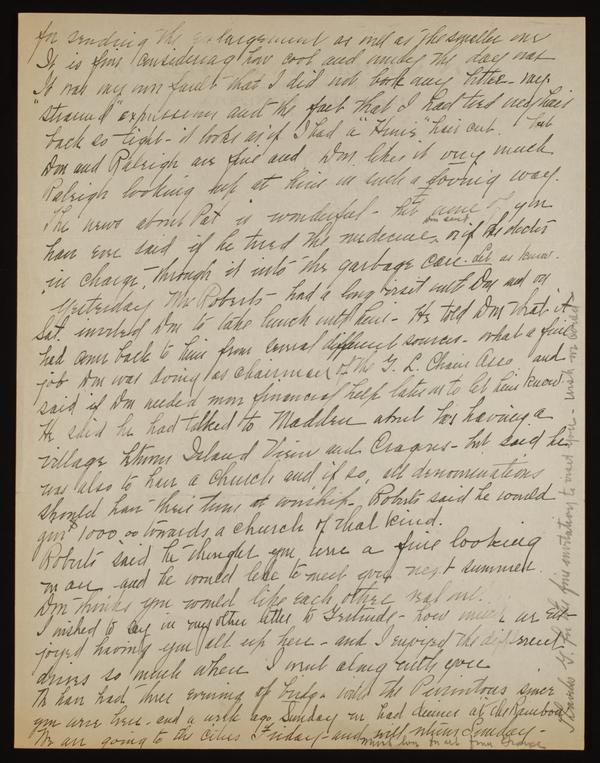 for sending the enlargement as well as the smaller one
It is fine considering how cool and windy the day was
It was my own fault that I did not look any better - my
"strained" expression and the fact that I had tied my hair
back so tight - it looks as if I had a "Hines" hair cut. But
Don and Raleigh are fine and Don likes it very much
Raleigh looking up at him in such a loving way.
The news about Pat is wonderful - but none of you
have ever said if he tried the medicine, or if the doctor
in charge, through it into the garbage can. Let us know.
Yesterday Mr Roberts had a long visit with Don and on
Sat. invited Don to take lunch with him - He told Don that it
had come back to him from several different sources - what a fine
job Don was doing as chairman of the G. L. Chain Asso and
said if Don needed more financial help later on to let him know
He said he had talked to Madden about his having a
village between Island View and Cragnes - but said he
was also to have a church and if so, all denominations
should have their turn at worship. Roberts said he would
give $1000.00 towards a church of that kind.
Roberts said he thought you were a fine looking
man and he would love to meet you next summer.
Don thinks you would like each other real well.
I wished to say in my other letter to Gertrude - how much we en-
joyed having you all up here - and I enjoyed the different
drives so much where I went along with you
We have had three evenings of bridge with the since
you were here - and a week ago Sunday we had dinner at the Rainbow
We are going to the cities Friday - and will return Sunday -
much love to all from Grace
Thanks G. for the fine invitation to visit you - wish we could